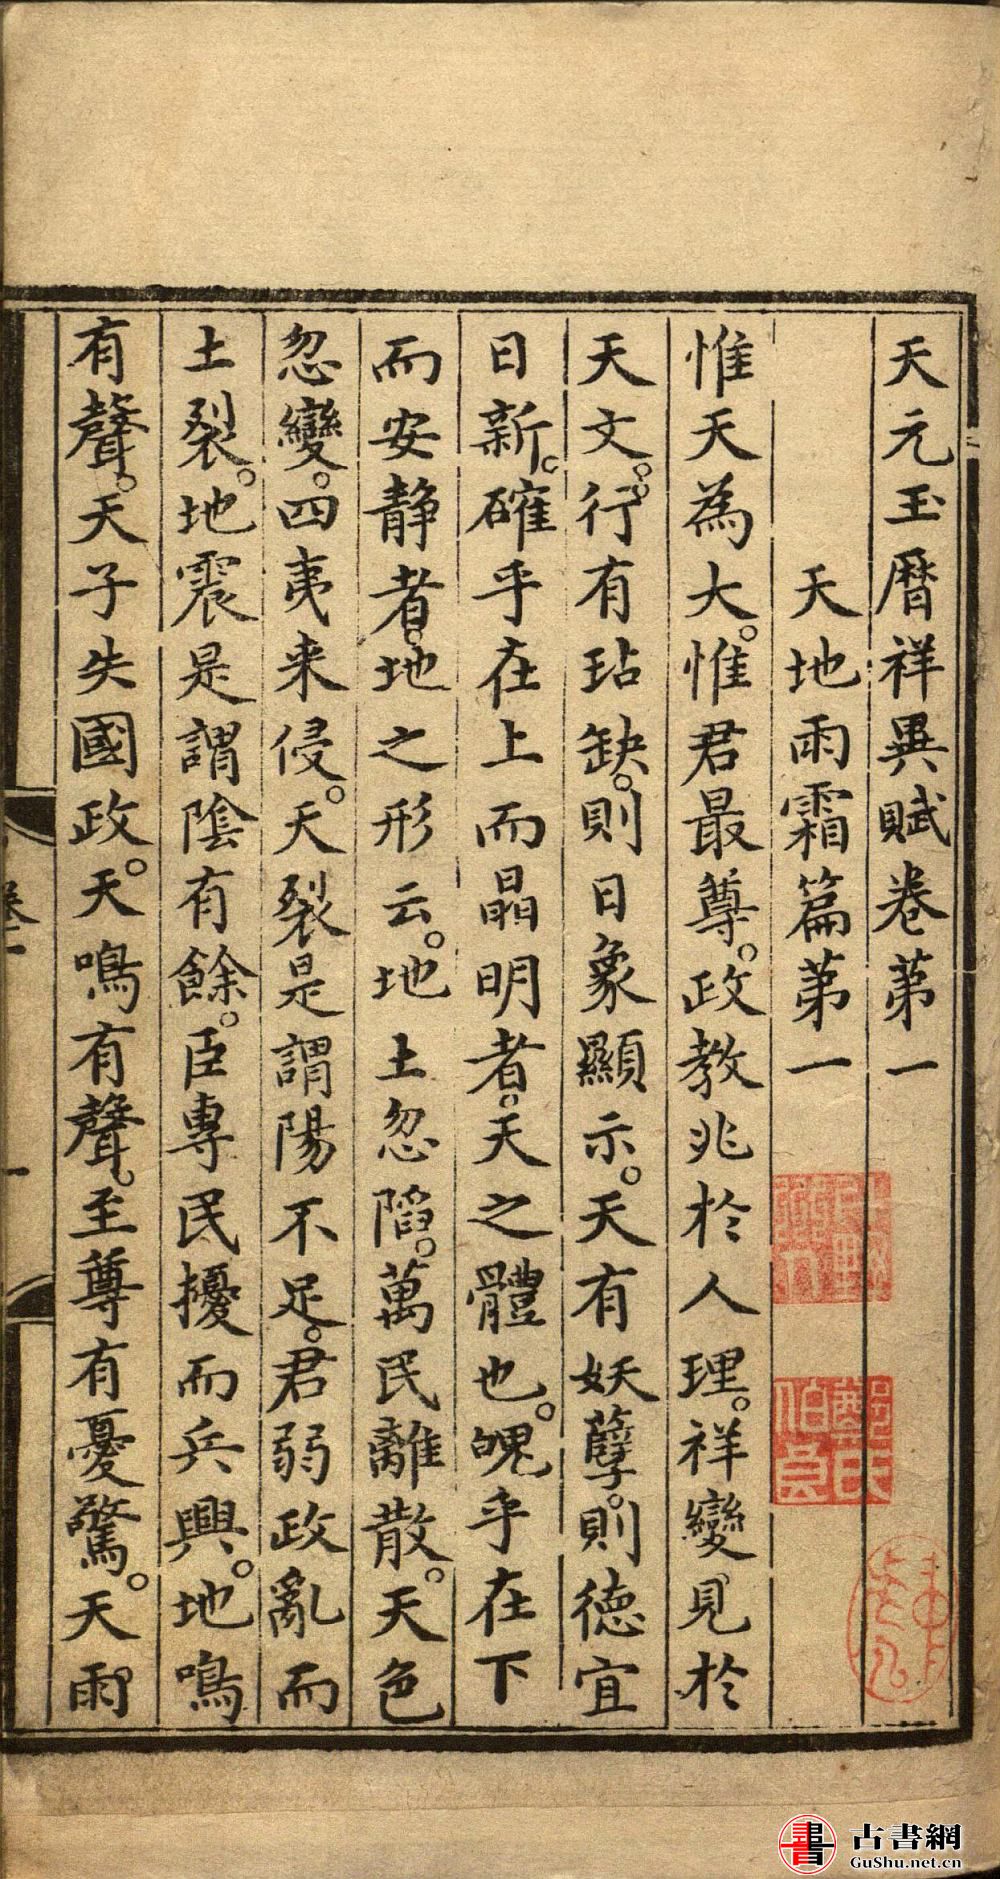 天元玉曆祥異賦卷第一
天地雨霜篇第一
惟天為大。惟君最尊。政教兆於人理。祥變見於
天文。行有玷缺。則日象顯示。天有妖孽。則德宜
日新。確乎在上而晶明者。天之體也。魄乎在下
而安静者。地之形云。地土忽陷。萬民離散。天色
忽變。四夷来侵。天裂是謂陽不足。君弱政亂而
土裂。地震是謂陰有餘。臣專民擾而兵興。地鳴
有聲。天子失國政。天鳴有聲。至尊有憂驚。天雨
卷一
一
古書網
GuShu.net.cn